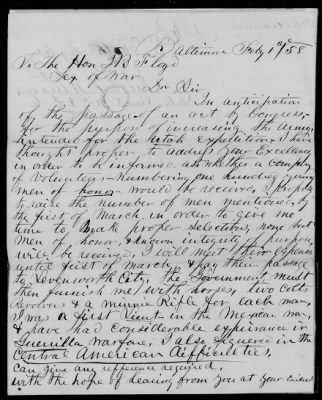 Baltimore Feby 1st/58
To The Hon J B Floyd
Sec of War
Dr Sir
In anticipation
of the passage of an act by Congress
for the purpose of increasing the Army
intended for the Utah expedition I have
thought proper to address your Excellency
in order to be informed whether a company
of Volunteers numbering one hundred young
men of honor would be received. I propose
to raise the number of men mentioned by
the first of March, in order to give me
time to make proper selections, none but
men of honor, & known integrity of purpose
will be received, I will meet their expenses
until first of march & pay their passage
to Levenworth City, The Government must
then furnish me with horses, two Colts
Revolvers & a minnie Rifle for each man,
I was a first Lieut in the Mexican war,
& have had considerable experience in
Guerrilla warfare, I also figured in the
Central American difficulties,
can give any refference required,
with the hope of hearing from you at your